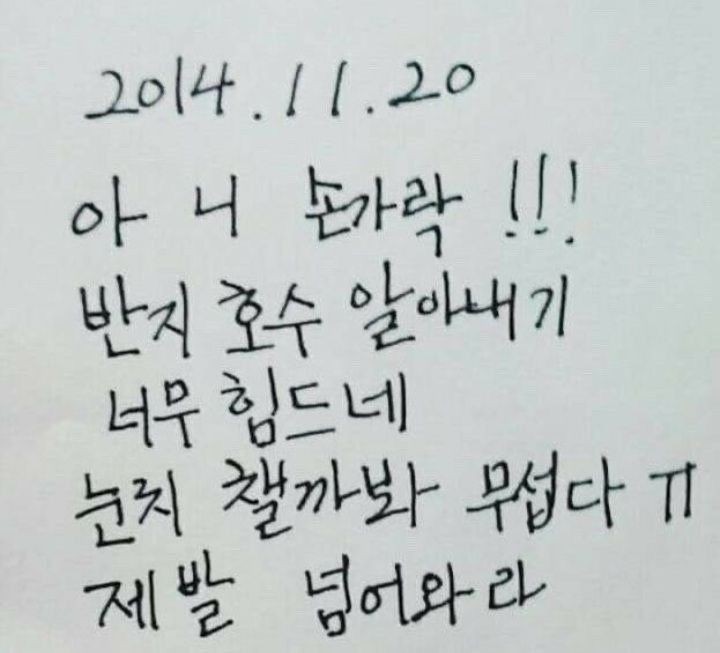 2014.11.20
아니 손가락!!!
반지 호수 알아내기
너무 힘드네
눈치 챌까봐 무섭다 ㅠ
제발 넘어와라